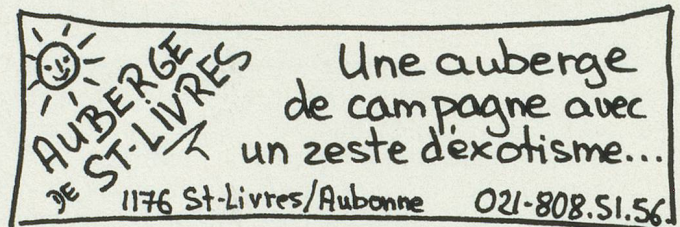 AUBERGE
DE ST-LIVRES
Une auberge
de campagne avec
un zeste d'éxotisme...
1176 St-Livres/Aubonne 021-808.51.56.